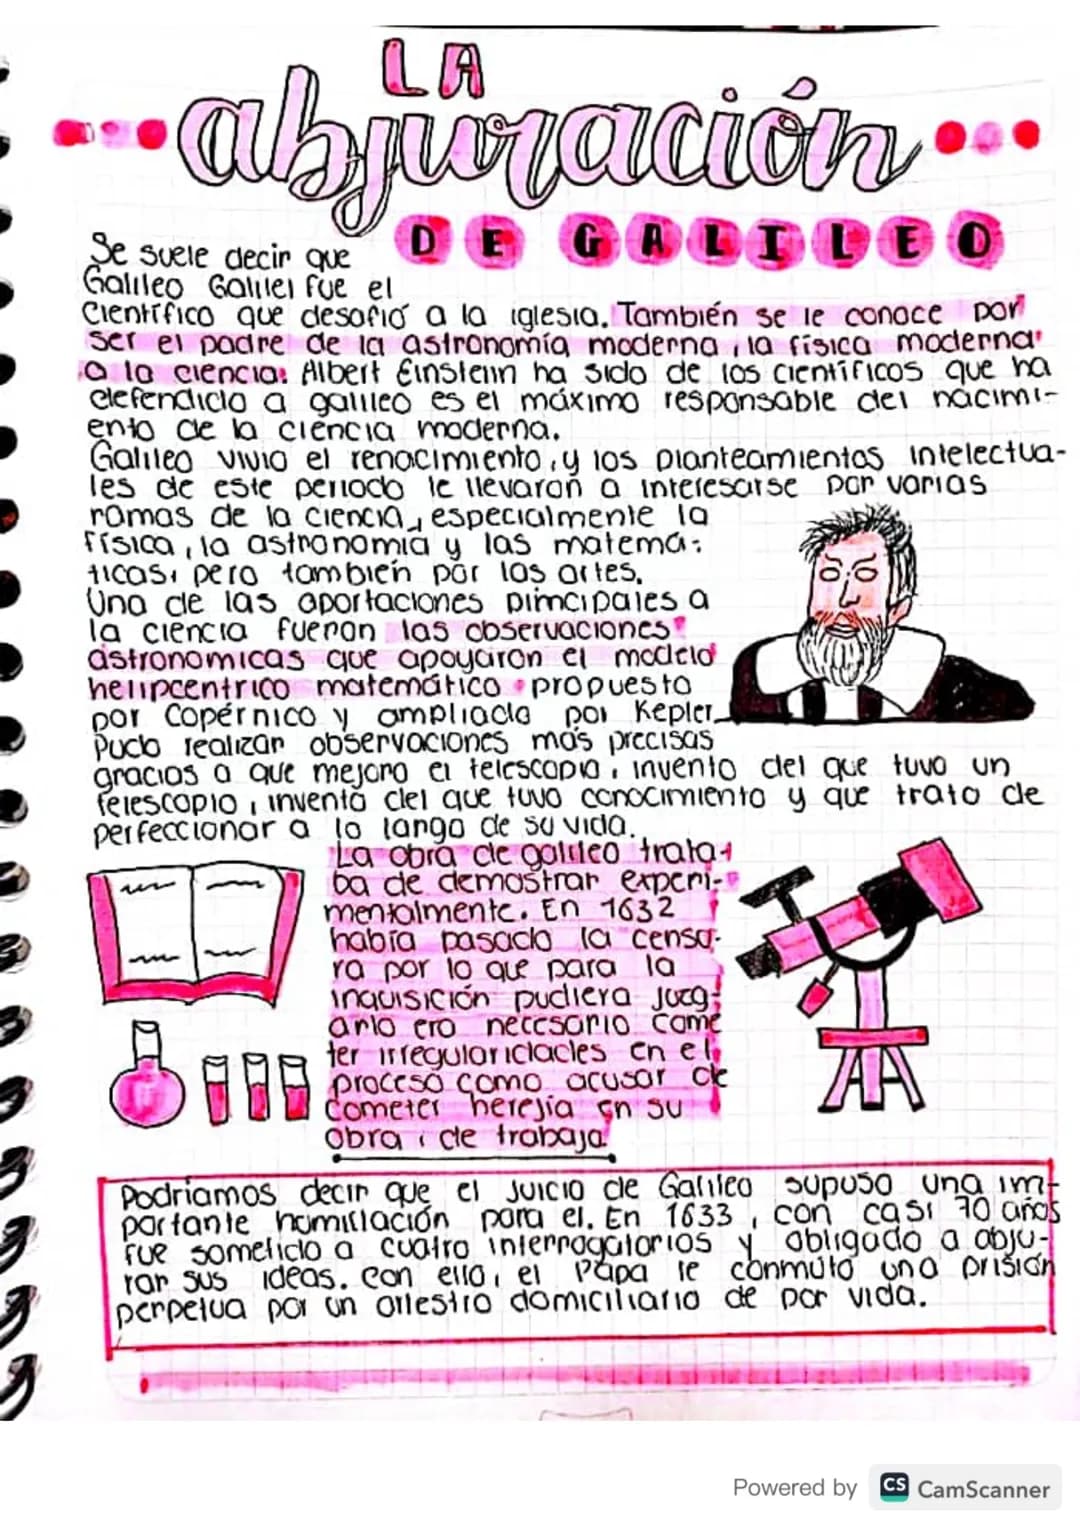 LA
abjuración
DE GALILEO
Se suele decir que
Galileo Galilei fue el
Científico que desafió a la iglesia. También se le conoce por
ser el padre de la astronomía moderna, la física moderna
a la ciencia. Albert Einstein ha sido de los científicos que ha
defendido a galileo es el máximo responsable del nacimi-
ento de la ciencia moderna.
Galileo vivio el renacimiento, y los planteamientos intelectua-
les de este periodo le llevaron a interesarse por varias
ramas de la ciencia, especialmente la
física, la astronomia y las matema-
ticas, pero también por las artes.
Una de las aportaciones principales a
la ciencia fueron las observaciones
astronomicas que apoyaron el modelo
heliocentrico matemático propuesto
por Copérnico y ampliada por Kepler.
Pudo realizar observaciones más precisas
gracias a que mejoro el telescopio, invento del que tuvo un
telescopio, invento del que tuvo conocimiento y que trato de
perfeccionar a lo largo de su vida.
La obra de galileo trata-
ba de demostrar experi-
mentalmente. En 1632
había pasado la censu-
ra por lo que para la
inquisición pudiera juzg-
arlo era necesario come
ter irregularidades en el
proceso como acusar de
cometer herejía en su
obra, de trabajo.
Podríamos decir que el Juicio de Galileo supuso una im-
portante humillación para el. En 1633, con casi 70 años
fue sometido a cuatro interrogatorios y obligado a abju-
rar sus ideas. Con ello, el Papa le conmuto una prisión
perpetua por un arrestro domiciliario de por vida.
Powered by CS CamScanner